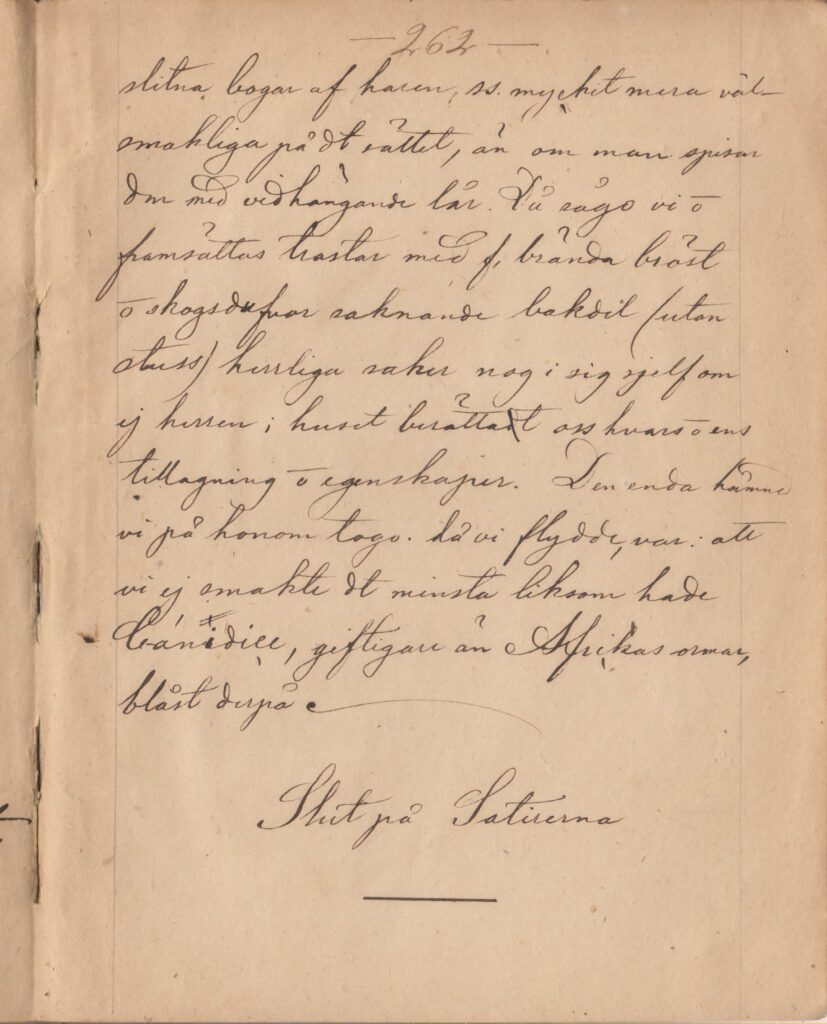 — 262 —
slitna bogar af haren, ss. myckit mera väl-
smakliga på dt sättet, än om man spisar
dm med vidhängande lår. Då sågo vi o
framsättas trastar med f. brända bröst
o skogsdufvor saknande bakdel (utan
stuss) herrliga saker nog i sig sjelf om
ej herren i huset berättat oss hvars o ens
tillagning o egenskaper. Den enda hämnd
vi på honom togo. då vi flydde, var: att
vi ej smakte dt minsta liksom hade
Cánidiee, giftigare än Afrikas ormar,
blåst derpå
Slut på Satirerna